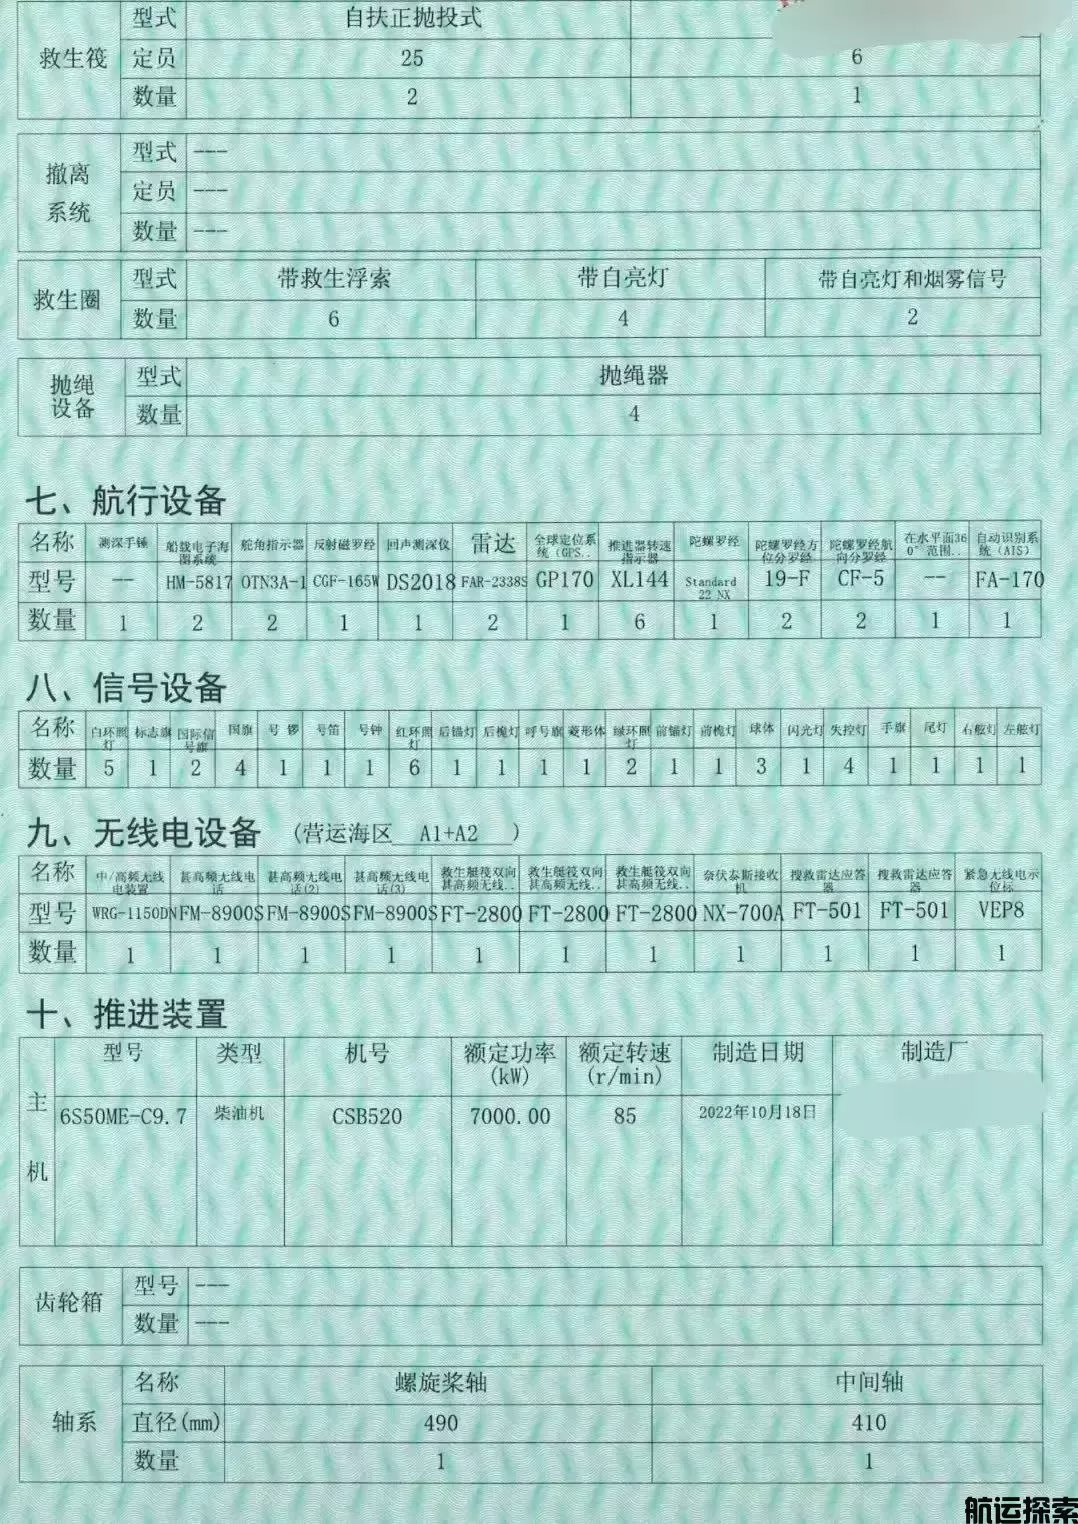 救生筏 型式 自扶正抛投式
定员 25 6
数量 2 1
撤离系统 型式 ---
定员 ---
数量 ---
救生圈 型式 带救生浮索 带自亮灯 带自亮灯和烟雾信号
数量 6 4 2
抛绳设备 型式 抛绳器
数量 4
七、航行设备
名称 测深手锤 船载电子海图系统 舵角指示器 反射磁罗经 回声测深仪 雷达 全球定位系统（GPS.. 推进器转速指示器 陀螺罗经 陀螺罗经方位分罗经 陀螺罗经航向分罗经 在水平面360°范围.. 自动识别系统（AIS）
型号 -- HM-5817 OTN3A-1 CGF-165W DS2018 FAR-2338S GP170 XL144 Standard 22 NX 19-F CF-5 -- FA-170
数量 1 2 2 1 1 2 1 6 1 2 2 1 1
八、信号设备
名称 白环照灯 标志旗 国际信号旗 国旗 号锣 号笛 号钟 红环照灯 后锚灯 后桅灯 呼号旗 菱形体 绿环照灯 前锚灯 前桅灯 球体 闪光灯 失控灯 手旗 尾灯 右舷灯 左舷灯
数量 5 1 2 4 1 1 1 6 1 1 1 1 2 1 1 3 1 4 1 1 1 1
九、无线电设备 (营运海区 A1+A2 )
名称 中/高频无线电装置 甚高频无线电话 甚高频无线电话(2) 甚高频无线电话(3) 救生艇筏双向甚高频无线.. 救生艇筏双向甚高频无线.. 救生艇筏双向甚高频无线.. 奈伏泰斯接收机 搜救雷达应答器 搜救雷达应答器 紧急无线电示位标
型号 WRG-1150DN FM-8900S FM-8900S FM-8900S FT-2800 FT-2800 FT-2800 NX-700A FT-501 FT-501 VEP8
数量 1 1 1 1 1 1 1 1 1 1 1
十、推进装置
主机 型号 类型 机号 额定功率(kW) 额定转速(r/min) 制造日期 制造厂
6S50ME-C9.7 柴油机 CSB520 7000.00 85 2022年10月18日
齿轮箱 型号 ---
数量 ---
轴系 名称 螺旋桨轴 中间轴
直径(mm) 490 410
数量 1 1
航运探索